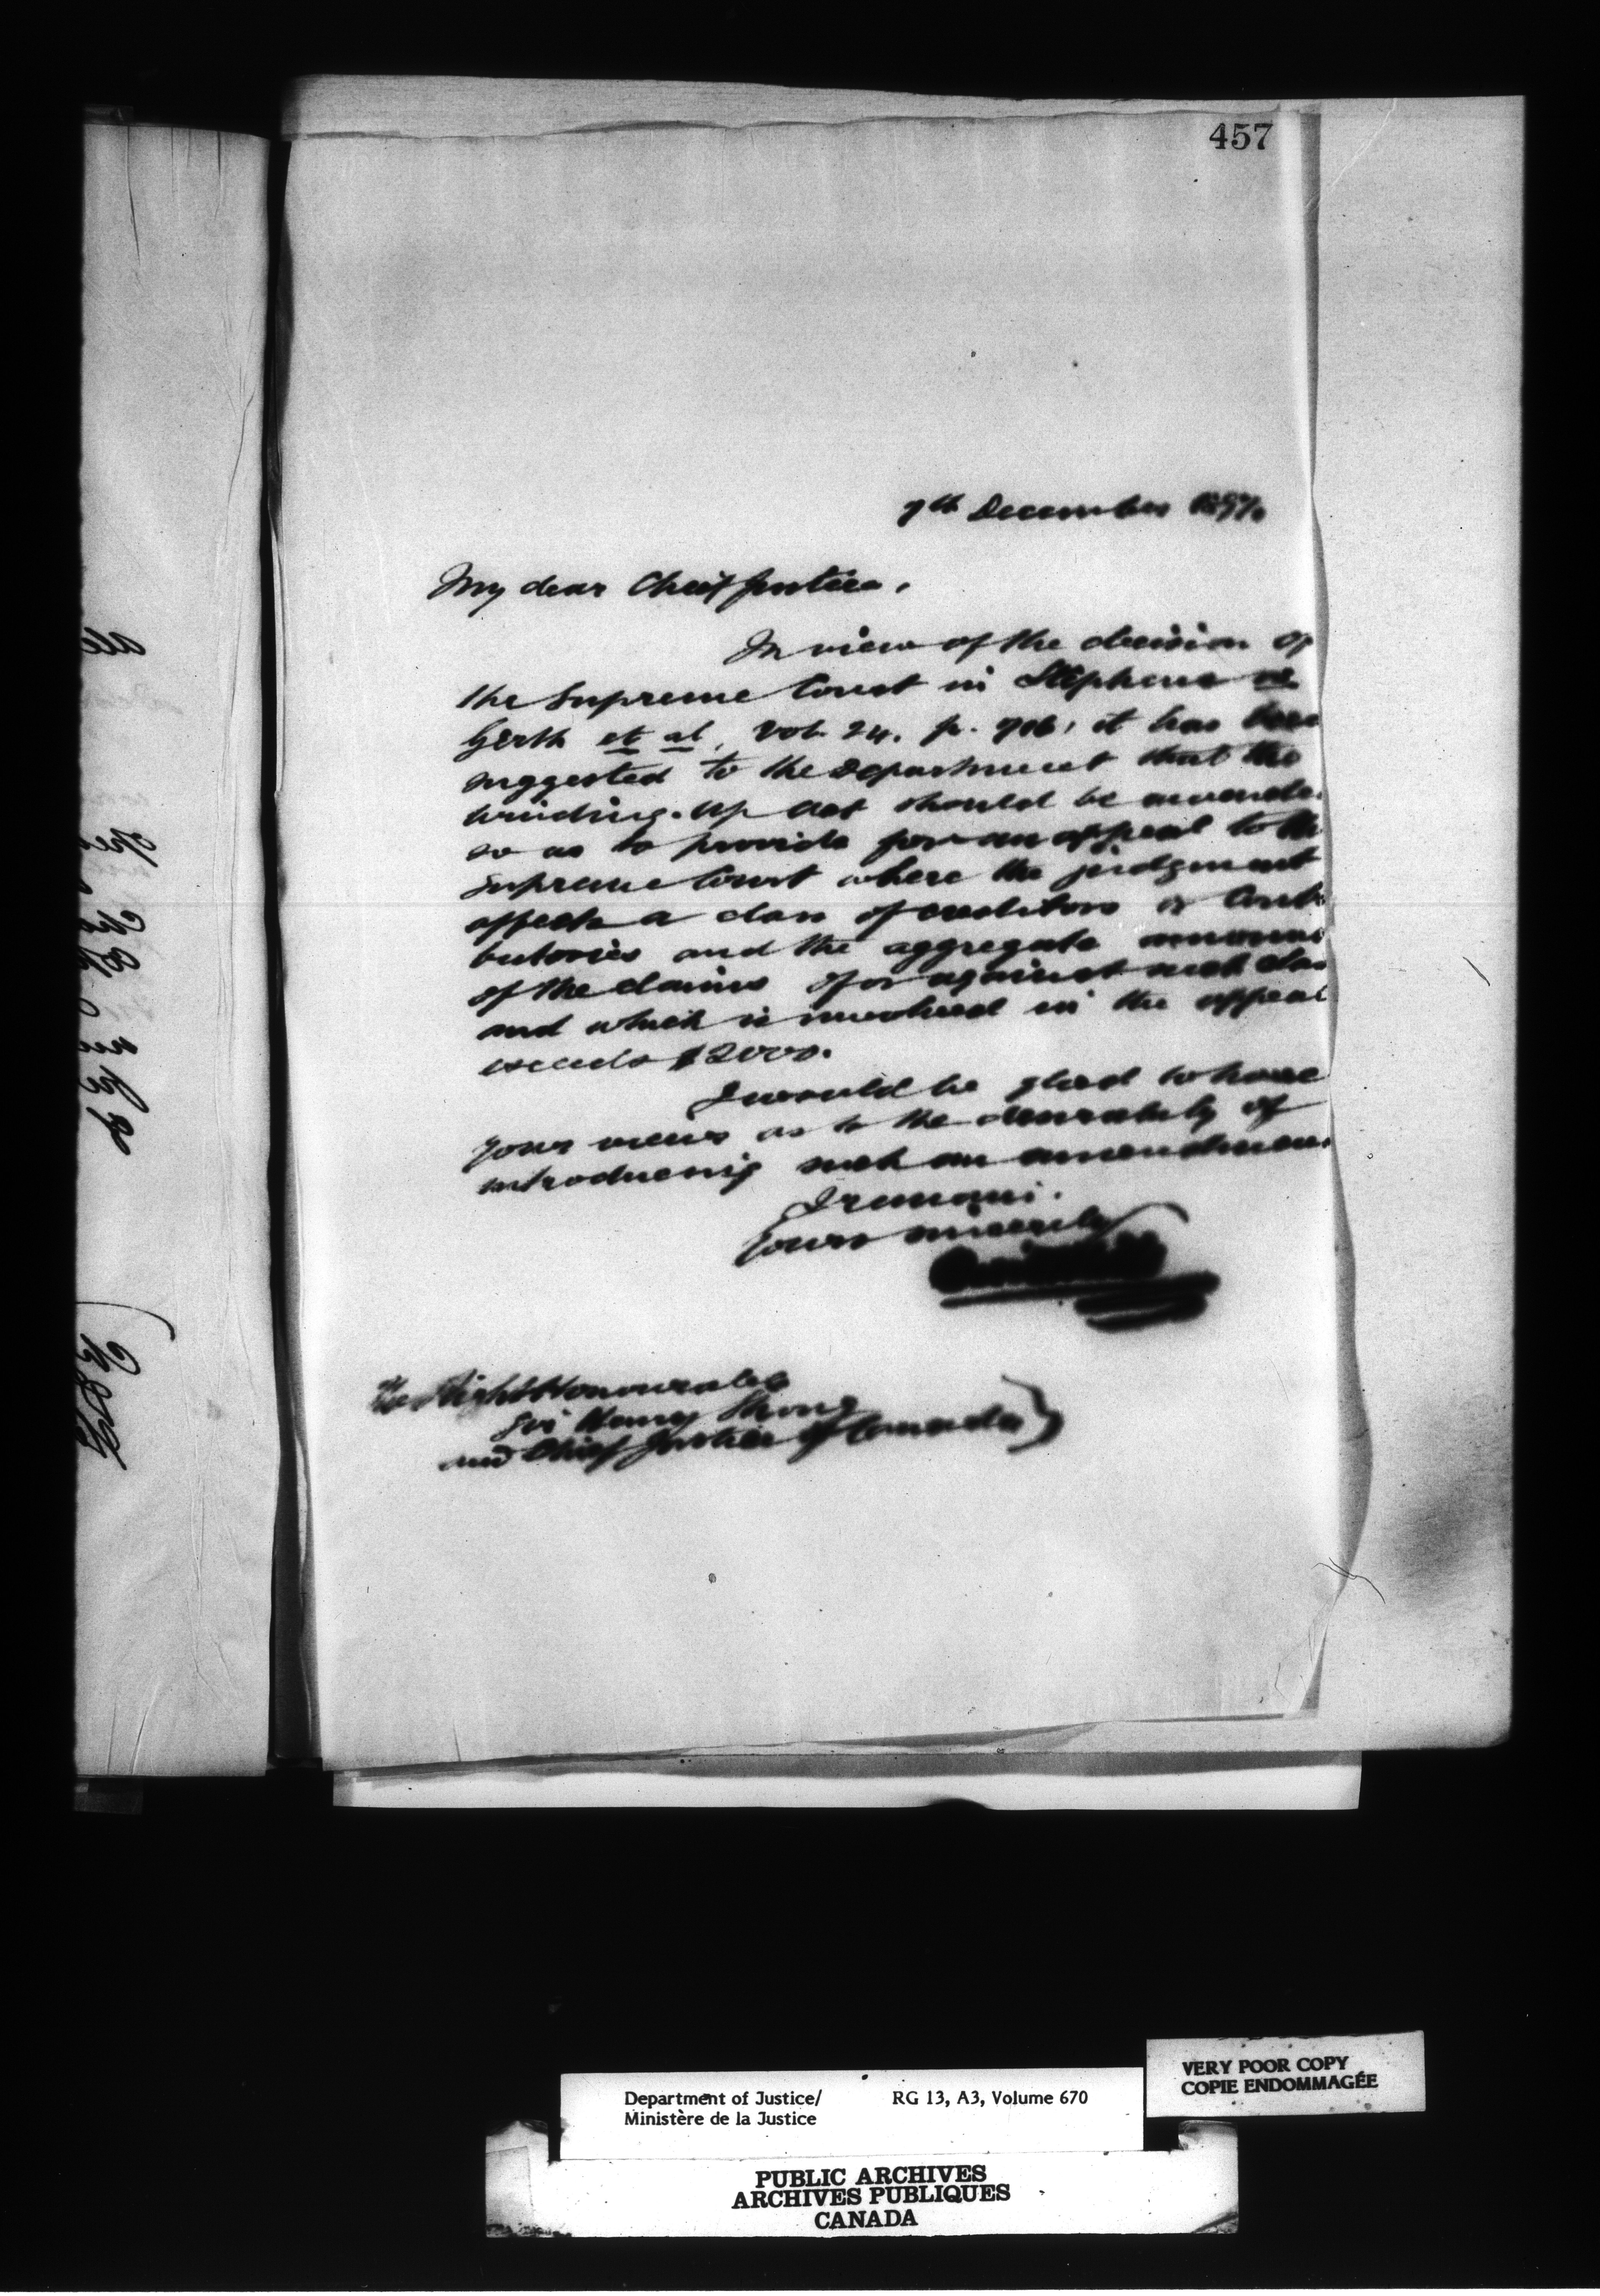 457
7th December 1897.
My dear Chief Justice,
In view of the decision of
the Supreme Court in Stephens vs
Gerth et al, Vol. 24. p. 716, it has been
suggested to the Department that the
winding-up Act should be amended
so as to provide for an appeal to the
Supreme Court where the judgment
affects a class of creditors or Contri
butories and the aggregate amount
of the claims of or against such class
and which is involved in the appeal
exceeds $2000.
I would be glad to have
your views as to the desirability of
introducing such an amendment.
I remain.
Yours sincerely
The Right Honourable
Sir Henry Strong
Chief Justice of Canada
Department of Justice/ RG 13, A3, Volume 670
Ministère de la Justice
VERY POOR COPY
COPIE ENDOMMAGÉE
PUBLIC ARCHIVES
ARCHIVES PUBLIQUES
CANADA